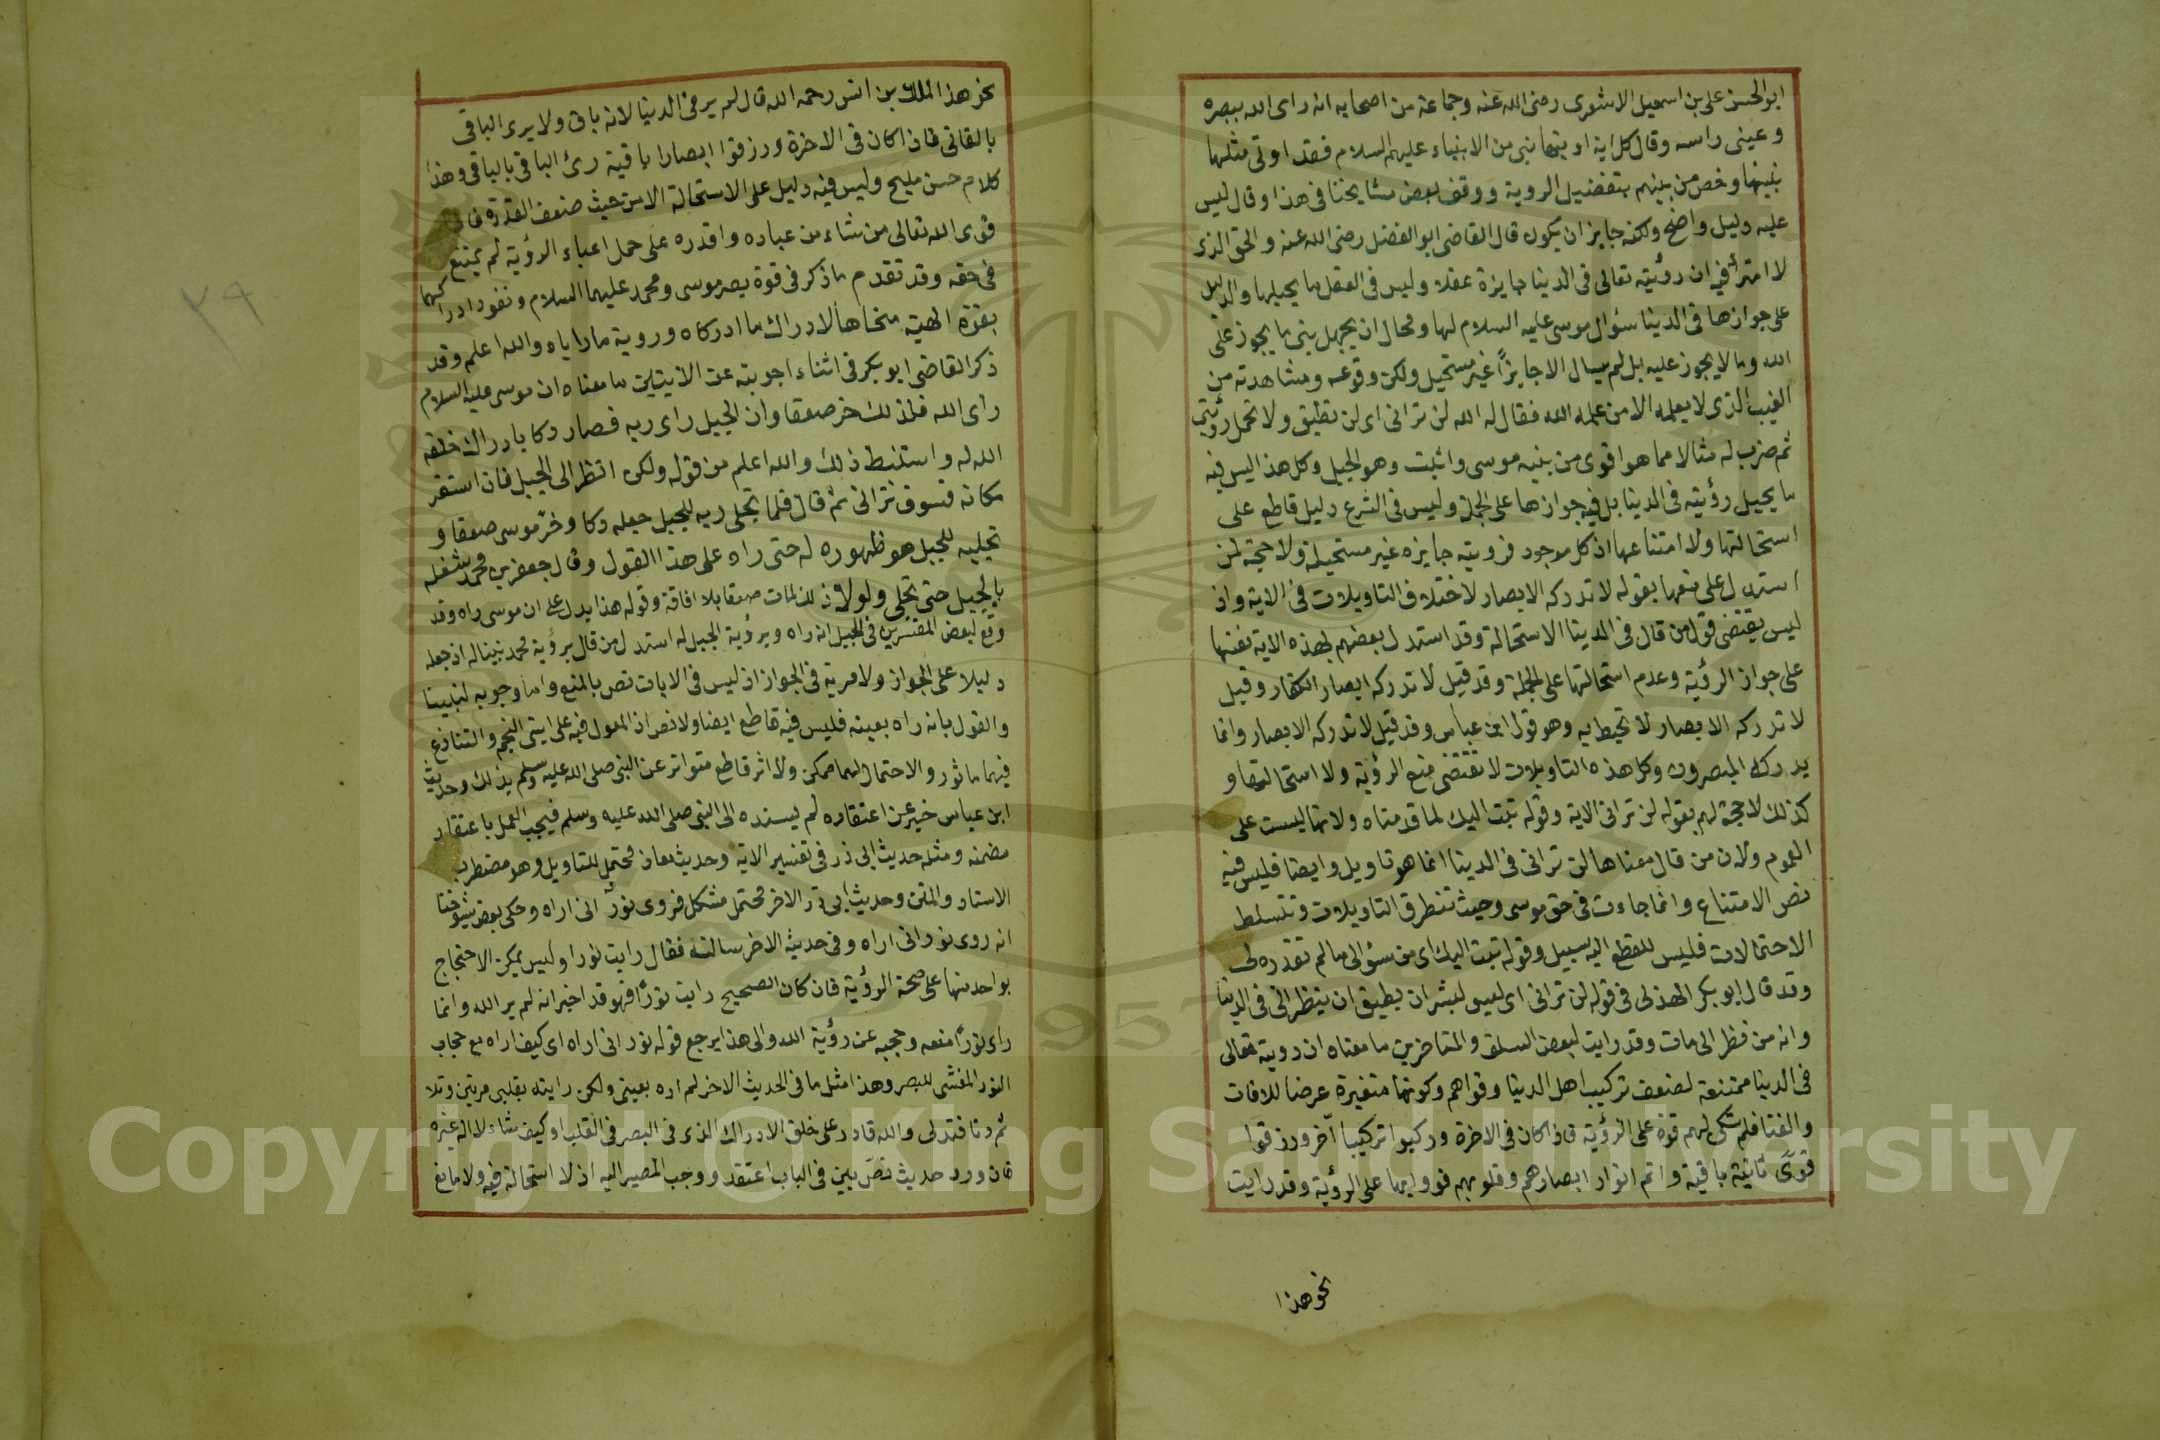 ابو الحسن على بن اسمعيل الاشعرى رضى الله عنه وجماعة من اصحابه انه راى الله ببصره
وعينى راسه وقال كل اية اوتيها نبى من الانبياء عليهم السلام فقد اوتى مثلها
نبينا وخص من بينهم بتفضيل الروية ووقف بعض مشايخنا فى هذا وقال ليس
عليه دليل واضح ولكنه جايز ان يكون قال القاضى ابو الفضل رضى الله عنه والحق الذى
لا امتراء فيه ان رؤيته تعالى فى الدنيا جايزة عقلا وليس فى العقل ما يحيلها والدليل
على جوازها فى الدنيا سؤال موسى عليه السلام لها ومحال ان يجهل نبى ما يجوز على
الله وما لا يجوز عليه بل لم يسال الا جايزًا غير مستحيل ولكن وقوعه ومشاهدته من
الغيب الذى لا يعلمه الا من علمه الله فقال له الله لن ترانى اى لن تطيق ولا تحمل رؤيتى
ثم ضرب له مثالا مما هو اقوى من بنيه موسى واثبت وهو الجبل وكل هذا ليس فيه
ما يحيل رؤيته فى الدنيا بل فيه جوازها على الجملة وليس فى الشرع دليل قاطع على
استحالتها ولا امتناعها اذ كل موجود فرويته جايزه غير مستحيلة ولا حجة لمن
استدل على منعها بقوله لا تدركه الابصار لاختلاف التاويلات فى الاية واذ
ليس يقتضى قول من قال فى الدنيا الاستحالة وقد استدل بعضهم بهذه الاية نفسها
على جواز الرؤية وعدم استحالتها على الجملة وقد قيل لا تدركه ابصار الكفار وقيل
لا تدركه الابصار لا تحيط به وهو قول ابن عباس وقد قيل لا تدركه الابصار وانما
يدركه المبصرون وكل هذه التاويلات لا تقتضى منع الرؤية ولا استحالتها و
كذلك لا حجة لهم بقوله لن ترانى الاية وقوله تبت اليك لما قدمناه ولانها ليست على
العموم ولان من قال معناها لن ترانى فى الدنيا انما هو تاويل وايضا فليس فيه
نص الامتناع وانما جاءت فى حق موسى وحيث تتطرق التاويلات وتتسلط
الاحتمالات فليس للقطع اليه سبيل وقوله تبت اليك اى من سؤالى ما لم تقدره لى
وقد قال ابو بكر الهذلى فى قوله لن ترانى اى ليس لبشر ان يطيق ان ينظر الى فى الدنيا
وانه من نظر الى مات وقد رايت لبعض السلف والمتاخرين ما معناه ان روية تعالى
فى الدنيا ممتنعة لضعف تركيب اهل الدنيا وقواهم وكونها متغيرة عرضا للافات
والفنا فلم تكن لهم قوة على الرؤية فاذا كان فى الاخرة وركبوا تركيبا آخر ورزقوا
قوًى ثابتة باقية واتم انوار ابصارهم وقلوبهم قووا بها على الرؤية وقد رايت
نحو هذا
نحو هذا الملك بن انس رحمه الله قال لم ير فى الدنيا لانه باق ولا يرى الباقى
بالفانى فاذا كان فى الاخرة ورزقوا ابصارا باقية رئ الباقى بالباقى وهذا
كلام حسن مليح وليس فيه دليل على الاستحالة الا من حيث ضعف القدرة فاذا
قوى الله تعالى من شاء من عباده واقدره على حمل اعباء الرؤية لم يمتنع
فى حقه وقد تقدم ما ذكر فى قوة بصر موسى ومحمد عليهما السلام ونفوذ ادراكهما
بقوة الهية منحاها لادراك ما ادركاه وروية ما راياه والله اعلم وقد
ذكر القاضى ابو بكر فى اثناء اجوبته عن الايتين ما معناه ان موسى عليه السلام
راى الله فلذلك خر صعقا وان الجبل راى ربه فصار دكا بادراك خلقه
الله له واستنبط ذلك والله اعلم من قوله ولكن انظر الى الجبل فان استقر
مكانه فسوف ترانى ثم قال فلما تجلى ربه للجبل جعله دكا وخرّ موسى صعقا و
تجليه للجبل هو ظهوره له حتى راه على هذا القول وقال جعفر بن محمد شغله
بالجبل حتى تجلى ولولا ذلك لمات صعقا بلا افاقة وقوله هذا يدل على ان موسى راه وقد
وقع لبعض المفسرين فى الجبل انه راه وبرؤية الجبل له استدل من قال برؤية محمد نبينا له اذ جعله
دليلا على الجواز ولا مرية فى الجواز اذ ليس فى الايات نص بالمنع واما وجوبه لنبينا
والقول بانه راه بعينه فليس فيه قاطع ايضا ولا نص اذ المعول فيه على ايتى النجم والتنازع
فيهما ماثور والاحتمال لهما ممكن ولا اثر قاطع متواتر عن النبى صلى الله عليه وسلم بذلك وحديث
ابن عباس خبر عن اعتقاده لم يسنده الى النبى صلى الله عليه وسلم فيجب العمل باعتقاد
مضمنه ومثله حديث ابى ذر فى تفسير الاية وحديث معاذ محتمل للتاويل وهو مضطرب
الاسناد والمتن وحديث ابى ذر الاخر محتمل مشكل فروى نورٌ انى اراه وحكى بعض شيوخنا
انه روى نورانى اراه وفى حديثه الاخر سالته فقال رايت نورا وليس يمكن الاحتجاج
بواحد منها على صحة الرؤية فان كان الصحيح رايت نورًا فهو قد اخبر انه لم ير الله وانما
راى نورًا منعه وحجبه عن رؤية الله والى هذا يرجع قوله نور انى اراه اى كيف اراه مع حجاب
النور المغشى للبصر وهذا مثل ما فى الحديث الاخر لم اره بعينى ولكن رايته بقلبى مرتين وتلا
ثم دنا فتدلى والله قادر على خلق الادراك الذى فى البصر فى القلب او كيف شاء لا اله غيره
فان ورد حديث نصّ بيّن فى الباب اعتقد ووجب المصير اليه اذ لا استحالة فيه ولا مانع
٢٩
Copyright © King Saud University
1957